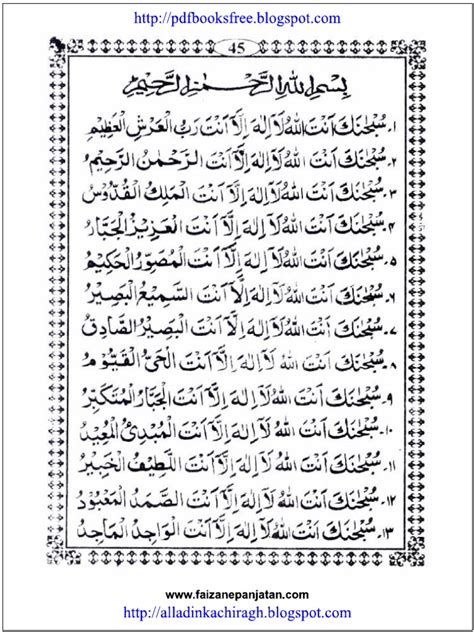 http://pdfbooksfree.blogspot.com
45
بِسْمِ اللهِ الرَّحْمٰنِ الرَّحِيْمِ
١۔ سُبْحٰنَكَ اَنْتَ اللهُ لَآ اِلٰهَ اِلَّا اَنْتَ رَبُّ الْعَرْشِ الْعَظِيْمِ
٢۔ سُبْحٰنَكَ اَنْتَ اللهُ لَآ اِلٰهَ اِلَّآ اَنْتَ الرَّحْمٰنُ الرَّحِيْمُ
٣۔ سُبْحٰنَكَ اَنْتَ اللهُ لَآ اِلٰهَ اِلَّآ اَنْتَ الْمَلِكُ الْقُدُّوْسُ
۴۔ سُبْحٰنَكَ اَنْتَ اللهُ لَآ اِلٰهَ اِلَّآ اَنْتَ الْعَزِيْزُ الْجَبَّارُ
۵۔ سُبْحٰنَكَ اَنْتَ اللهُ لَآ اِلٰهَ اِلَّآ اَنْتَ الْمُصَوِّرُ الْحَكِيْمُ
۶۔ سُبْحٰنَكَ اَنْتَ اللهُ لَآ اِلٰهَ اِلَّآ اَنْتَ السَّمِيْعُ الْبَصِيْرُ
۷۔ سُبْحٰنَكَ اَنْتَ اللهُ لَآ اِلٰهَ اِلَّآ اَنْتَ الْبَصِيْرُ الصَّادِقُ
۸۔ سُبْحٰنَكَ اَنْتَ اللهُ لَآ اِلٰهَ اِلَّآ اَنْتَ الْحَيُّ الْقَيُّوْمُ
۹۔ سُبْحٰنَكَ اَنْتَ اللهُ لَآ اِلٰهَ اِلَّآ اَنْتَ الْجَبَّارُ الْمُتَكَبِّرُ
۱۰۔ سُبْحٰنَكَ اَنْتَ اللهُ لَآ اِلٰهَ اِلَّآ اَنْتَ الْمُبْدِئُ الْمُعِيْدُ
۱۱۔ سُبْحٰنَكَ اَنْتَ اللهُ لَآ اِلٰهَ اِلَّآ اَنْتَ اللَّطِيْفُ الْخَبِيْرُ
۱۲۔ سُبْحٰنَكَ اَنْتَ اللهُ لَآ اِلٰهَ اِلَّآ اَنْتَ الصَّمَدُ الْمَعْبُوْدُ
۱۳۔ سُبْحٰنَكَ اَنْتَ اللهُ لَآ اِلٰهَ اِلَّآ اَنْتَ الْوَاجِدُ الْمَاجِدُ
www.faizanepanjatan.com
http://alladinkachiragh.blogspot.com